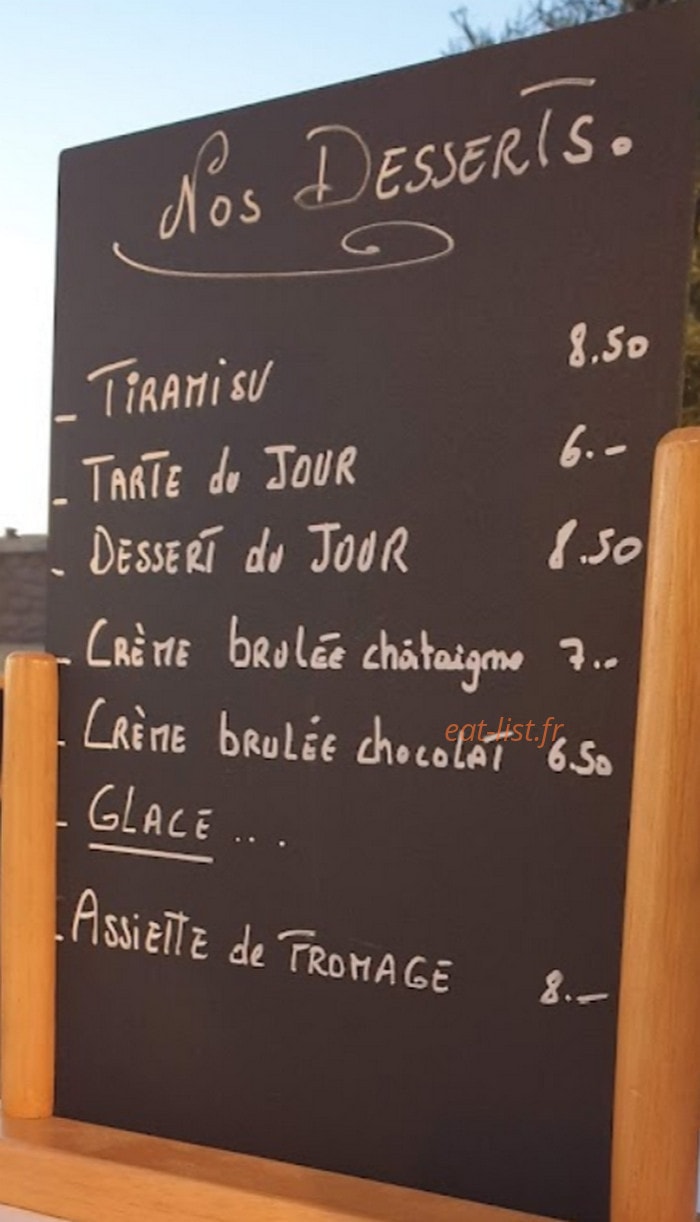 Nos DESSERTS.
- TIRAMISU 8.50
- TARTE du JOUR 6.-
- DESSERT du JOUR 8.50
- CRÈME BRULÉE châtaigne 7.-
- CRÈME BRULÉE chocolat 6.50
eat-list.fr
- GLACE ...
- ASSIETTE de FROMAGE 8.-